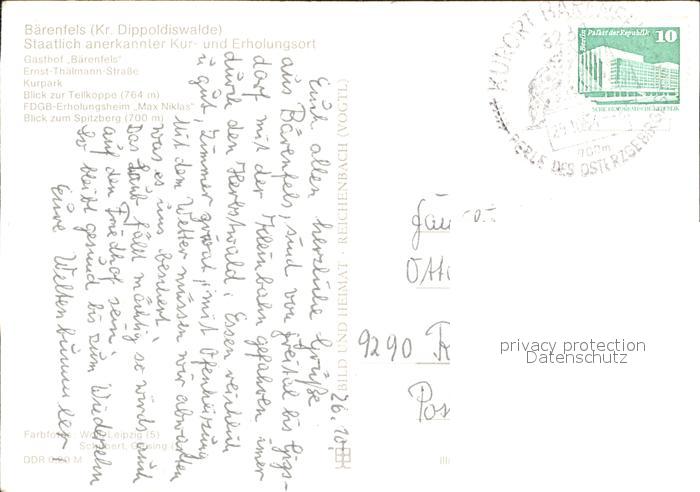 Bärenfels (Kr. Dippoldiswalde)
Staatlich anerkannter Kur- und Erholungsort
Gasthof „Bärenfels"
Ernst-Thälmann-Straße
Kurpark
Blick zur Tellkoppe (764 m)
FDGB-Erholungsheim „Max Niklas"
Blick zum Spitzberg (700 m)
26. 10.
Euch allen herzliche Grüße
aus Bärenfels, sind von Freital bis Gips-
dorf mit der Kleinbahn gefahren imer
durch den Herbstwald, Essen reichlich
u gut, Zimmer privat, mit Ofenheizung
Mit dem Wetter müssen wir abwarten
was es uns beschert,
Das Laub fällt mächtig so wirds auch
auf den Friedhof sein,
So bleibt gesund bis zum Wiedersehn
Eure Weltenbummler!
BILD UND HEIMAT · REICHENBACH (VOGTL)
KURORT BÄRENFELS
PERLE DES OSTERZGEBIRGES
700m
Berlin Palast der Republik
10
DEUTSCHE DEMOKRATISCHE REPUBLIK
Fam
Otto
9290
Pos
privacy protection
Datenschutz
Farbfotos: Leipzig (5)
Schubert, Geising
DDR M